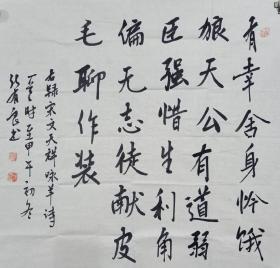 有幸舍身怜饿
狼天公有道弱
臣强惜生利角
偏无志徒献皮
毛聊作装
右録宋文天祥咏羊诗
一首时至甲午初冬
有良书